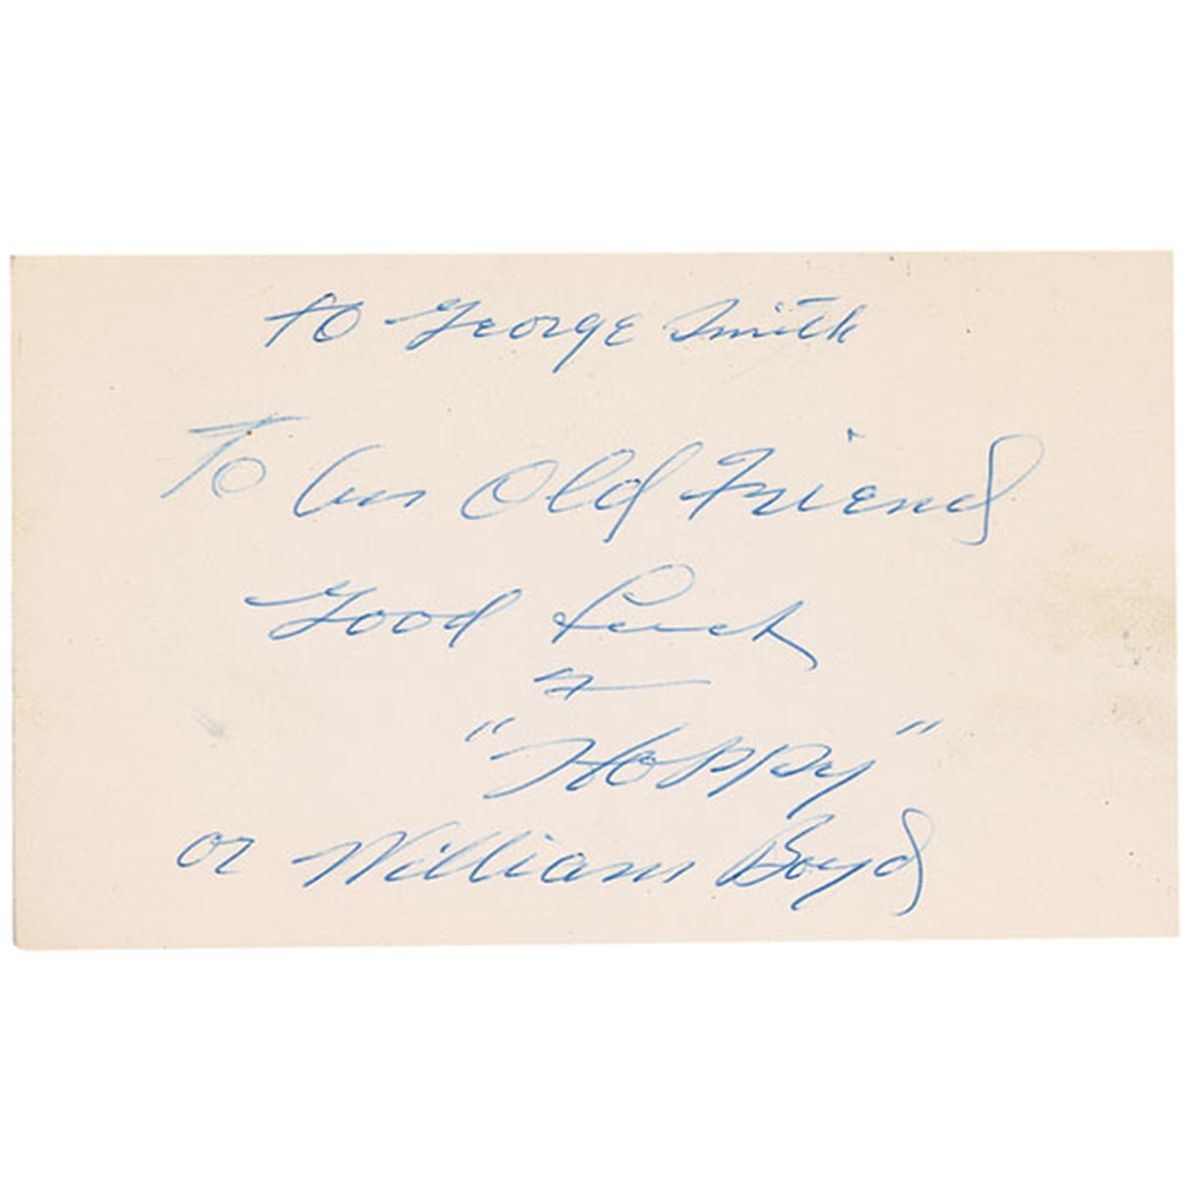 to George Smith
To An Old Friend
Good Luck
"Hoppy"
or William Boyd